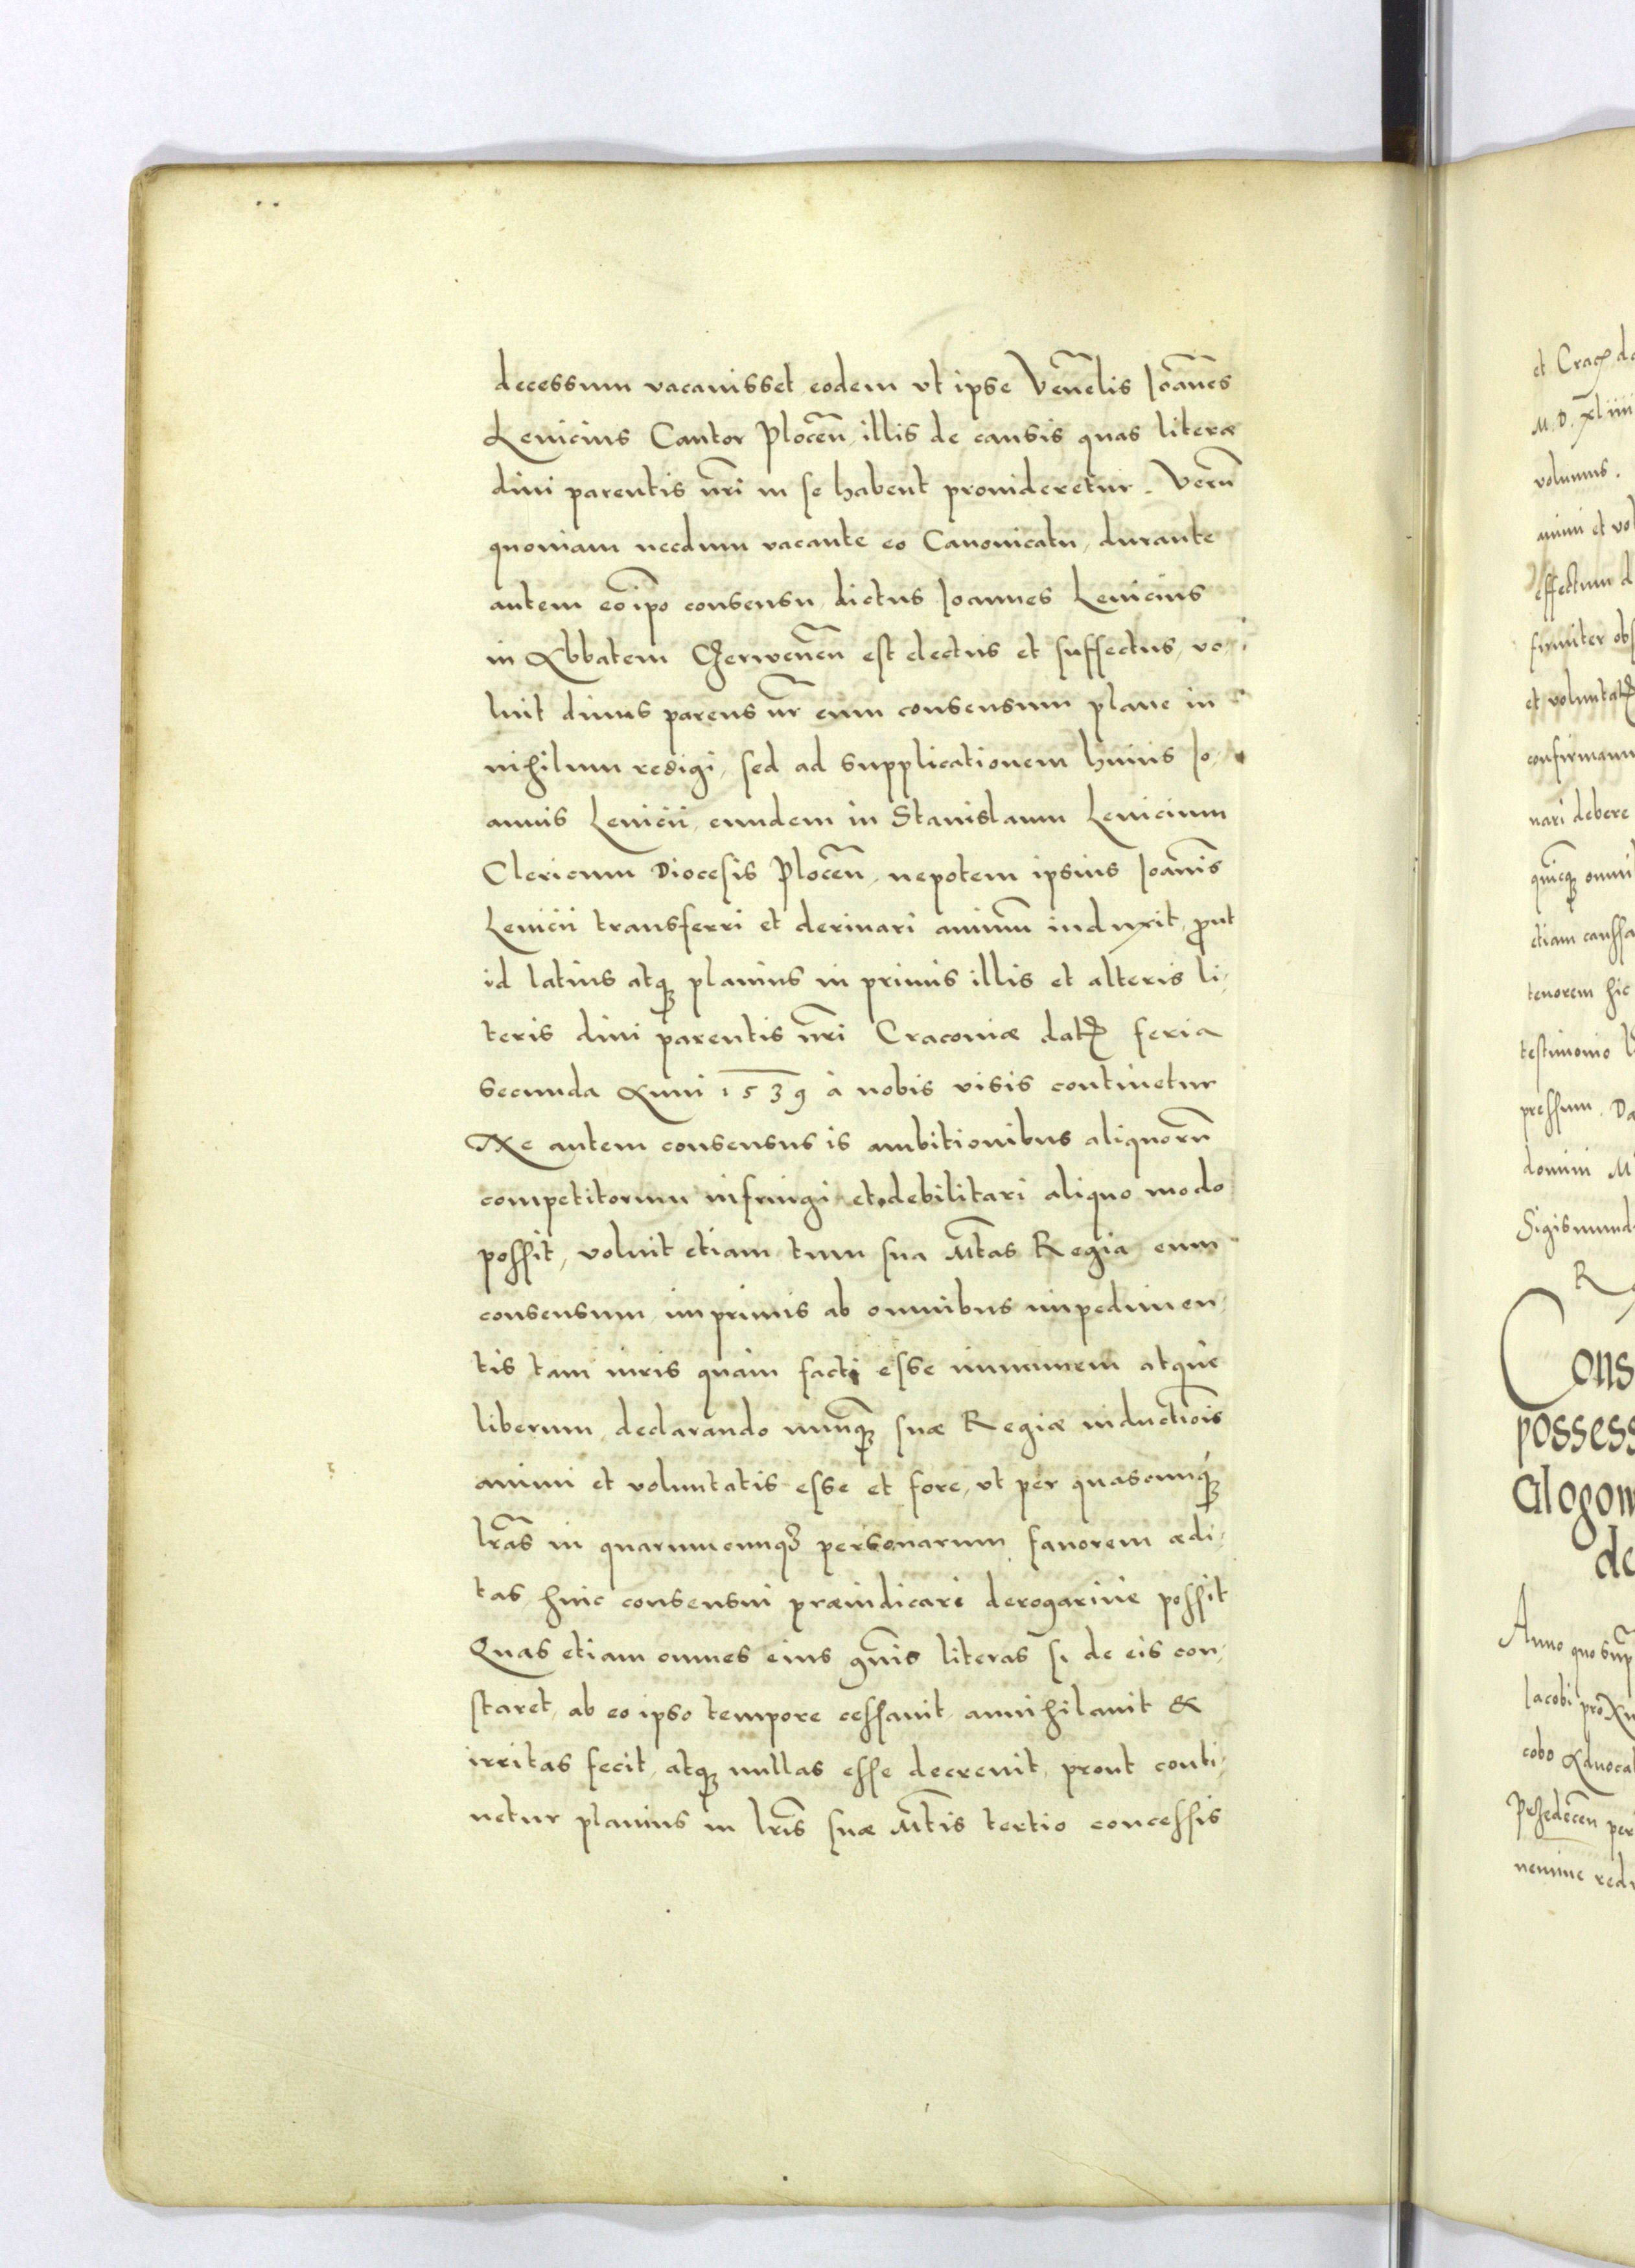 decessum vacauisset, eodem vt ipse Venẽlis Ioãnes
Leuicius Cantor Plocen̄, illis de causis quas literæ
diui parentis nr̃i in se habent prouideretur. Verũ
quoniam necdum vacante eo Canonicatu, durante
autem eo ip̃o consensu, dictus Ioannes Leuicius
in Abbatem Czerwenen̄ est electus et suffectus, vo-
luit diuus parens nr̃ eum consensum plane in
nihilum redigi, sed ad supplicationem huius Io-
annis Leuicii, eundem in Stanislaum Leuicium
Clericum Diocesis Plocen̄, nepotem ipsius Ioãnis
Leuicii transferri et deriuari animũ induxit, ꝓut
id latius atqꝫ planius in primis illis et alteris li-
teris diui parentis nr̃i Cracouiæ datꝭ feria
secunda Anni 1539 à nobis visis continetur
Ne autem consensus is ambitionibus aliquorũ
competitorum infringi et debilitari aliquo modo
possit, voluit etiam tum sua Mt̃as Regia eum
consensum imprimis ab omnibus impedimen-
tis tam iuris quàm facti esse immunem atque
liberum, declarando nunqꝫ suæ Regiæ inductiõis
animi et voluntatis esse et fore, vt per quascunqꝫ
lr̃as in quarumcunqꝫ personarum fauorem ædi-
tas huic consensui præiudicari derogariue possit
Quas etiam omnes eius gñis literas si de eis con-
staret, ab eo ipso tempore cessauit, annihilauit &
irritas fecit, atqꝫ nullas esse decreuit, prout conti-
netur planius in lr̃is suæ Mt̃is tertio concessis
et Cracꝭ
M.D.xliiii
volumus.
animi et
effectum
firmiter
et voluntatꝭ
nari debere
quicqꝫ
tenorem hic
testimonio
pressum.
domini
Anno quo
Iacobi
cobo
nemine